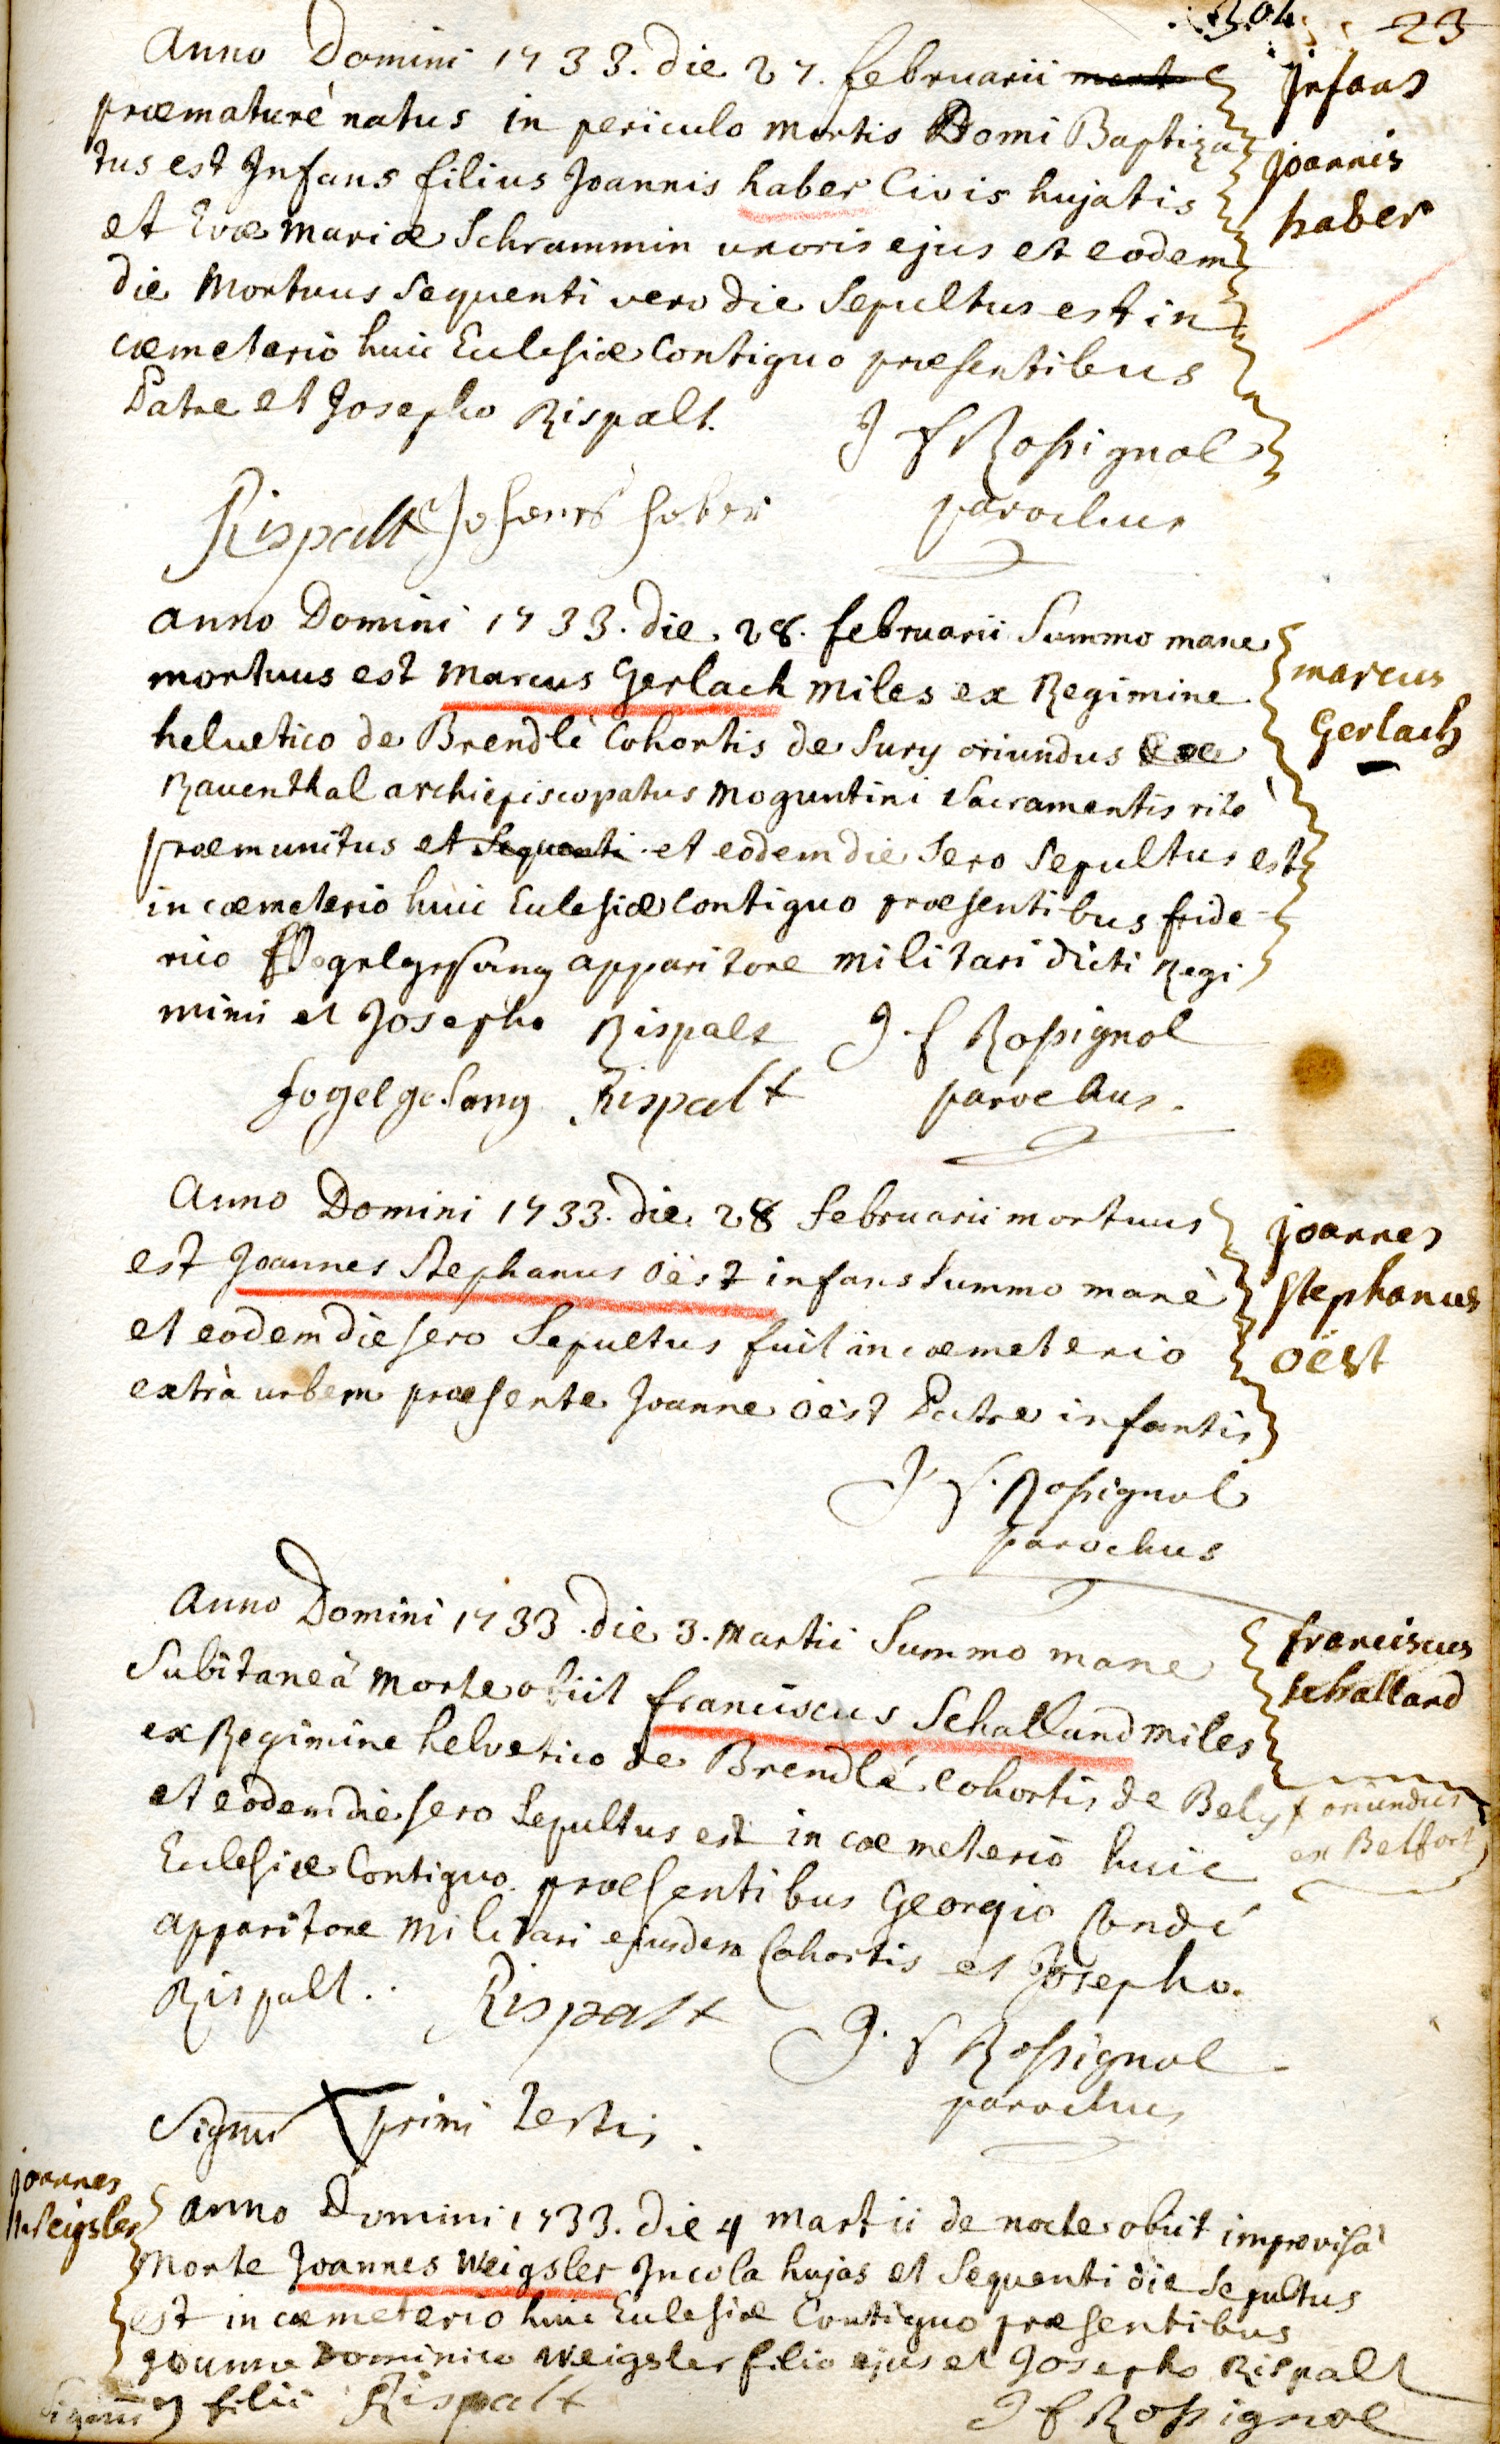 304. 23
Anno Domini 1733. die 27. februarii
præmaturè natus in periculo mortis Domi Baptiza
tus est Infans filius Joannis haber Civis hujatis
et Evæ mariæ Schrammin uxoris ejus et eodem
die Mortuus Sequenti vero die Sepultus est in
cœmeterio huic Ecclesiæ Contiguo præsentibus
Patre et Josepho Rispalt.
Infans
joannis
haber
J f Rossignol
parochus
Rispalt Johannes haber
anno Domini 1733. die 28. februarii Summo mane
mortuus est Marcus Gerlach miles ex Regimine
helvetico de Brendlè Cohortis de Sury oriundus ex
Rauenthal archiepiscopatus Moguntini Sacramentis ritè
præmunitus et Sequenti et eodem die Sero Sepultus est
in cœmeterio huic Ecclesiæ Contiguo præsentibus fride-
rico Vogelgesang apparitore militari dicti Regi
minis et Josepho Rispalt
marcus
Gerlach
J. f Rossignol
parochus.
fogelgesang Rispalt
Anno Domini 1733. die 28 februarii mortuus
est Joannes Stephanus Oëst infans Summo manè
et eodem die sero Sepultus fuit in cœmeterio
extrà urbem præsente Joanne Oëst Patre infantis
joannes
stephanus
oëst
J. f. Rossignol
parochus
Anno Domini 1733. die 3. Martii Summo mane
Subitaneâ Morte obiit franciscus Schalland miles
ex Regimine helvetico de Brendlé Cohortis de Bely
et eodem die sero Sepultus est in cœmeterio huic
Ecclesiæ Contiguo præsentibus Georgio Condé
apparitore Militari ejusdem Cohortis et Josepho
Rispalt.
franciscus
schalland
+ oriundus
ex Belfort
Rispalt
J. f Rossignol
parochus
Signum primi testis.
joannes
Weigsler
anno Domini 1733. die 4 martii de nocte obiit improvisâ
Morte Joannes Weigsler Incola hujas et Sequenti die Sepultus
est in cœmeterio huic Ecclesiæ Contiguo præsentibus
Joanne Dominico Weigsler filio ejus et Josepho Rispalt
Signum filii Rispalt
J f Rossignol